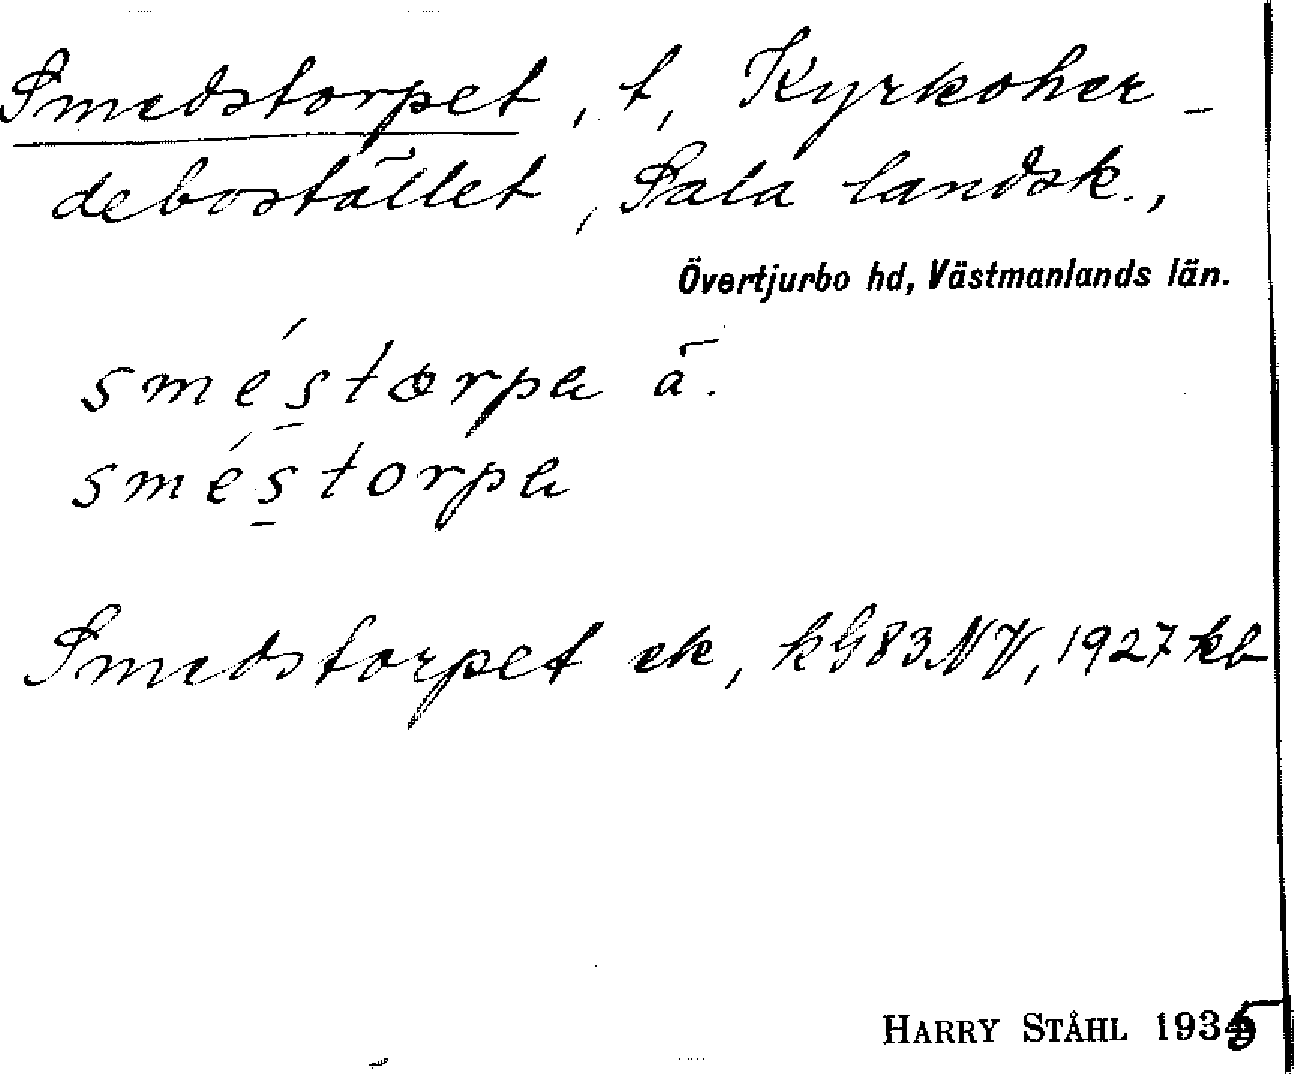 Smedstorpet, t, Kyrkoher-
debostället, Sala landsk.,
Övertjurbo hd, Västmanlands län.
sméstorpa ä.
sméstorpa
Smedstorpet ek, kG83NV, 1927 kb
HARRY STÅHL 1935